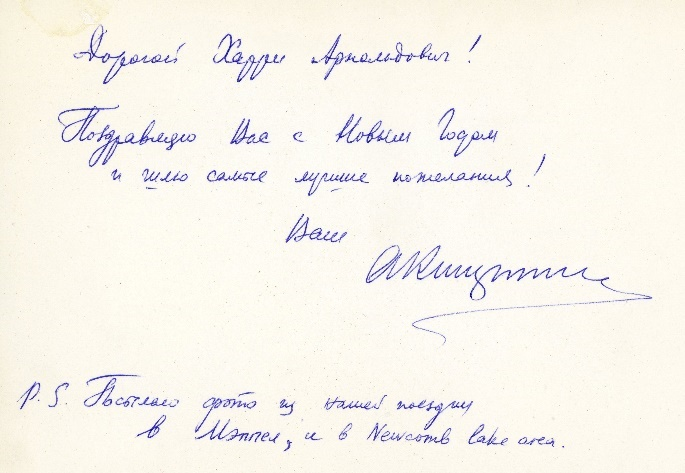 Дорогой Харри Арнольдович!
Поздравляю Вас с Новым Годом
и шлю самые лучшие пожелания!
Ваш
P.S. Посылаю фото из нашей поездки
в Мэппел, и в Newcomb lake area.